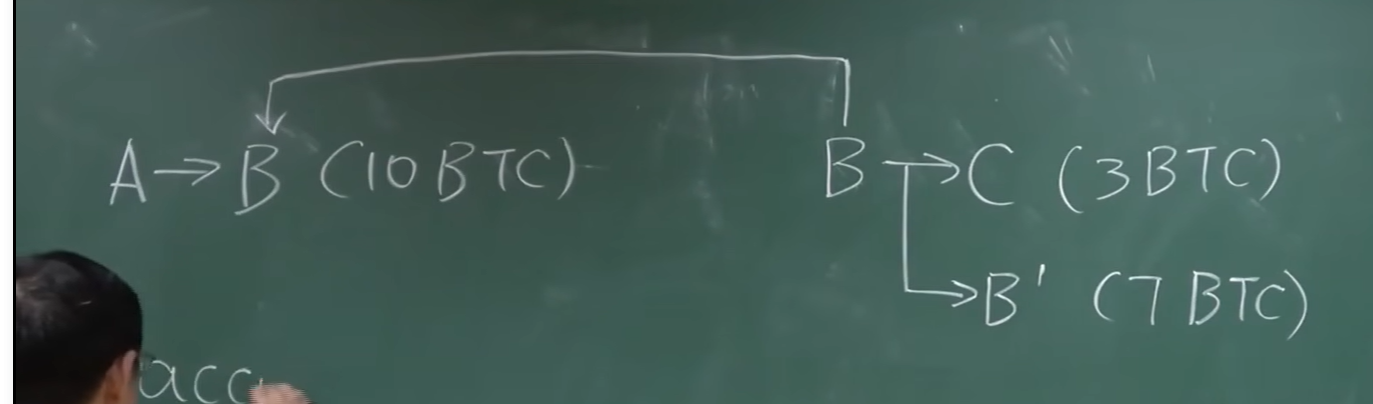 A → B (10 BTC)
B → C (3 BTC)
→ B' (7 BTC)
acc